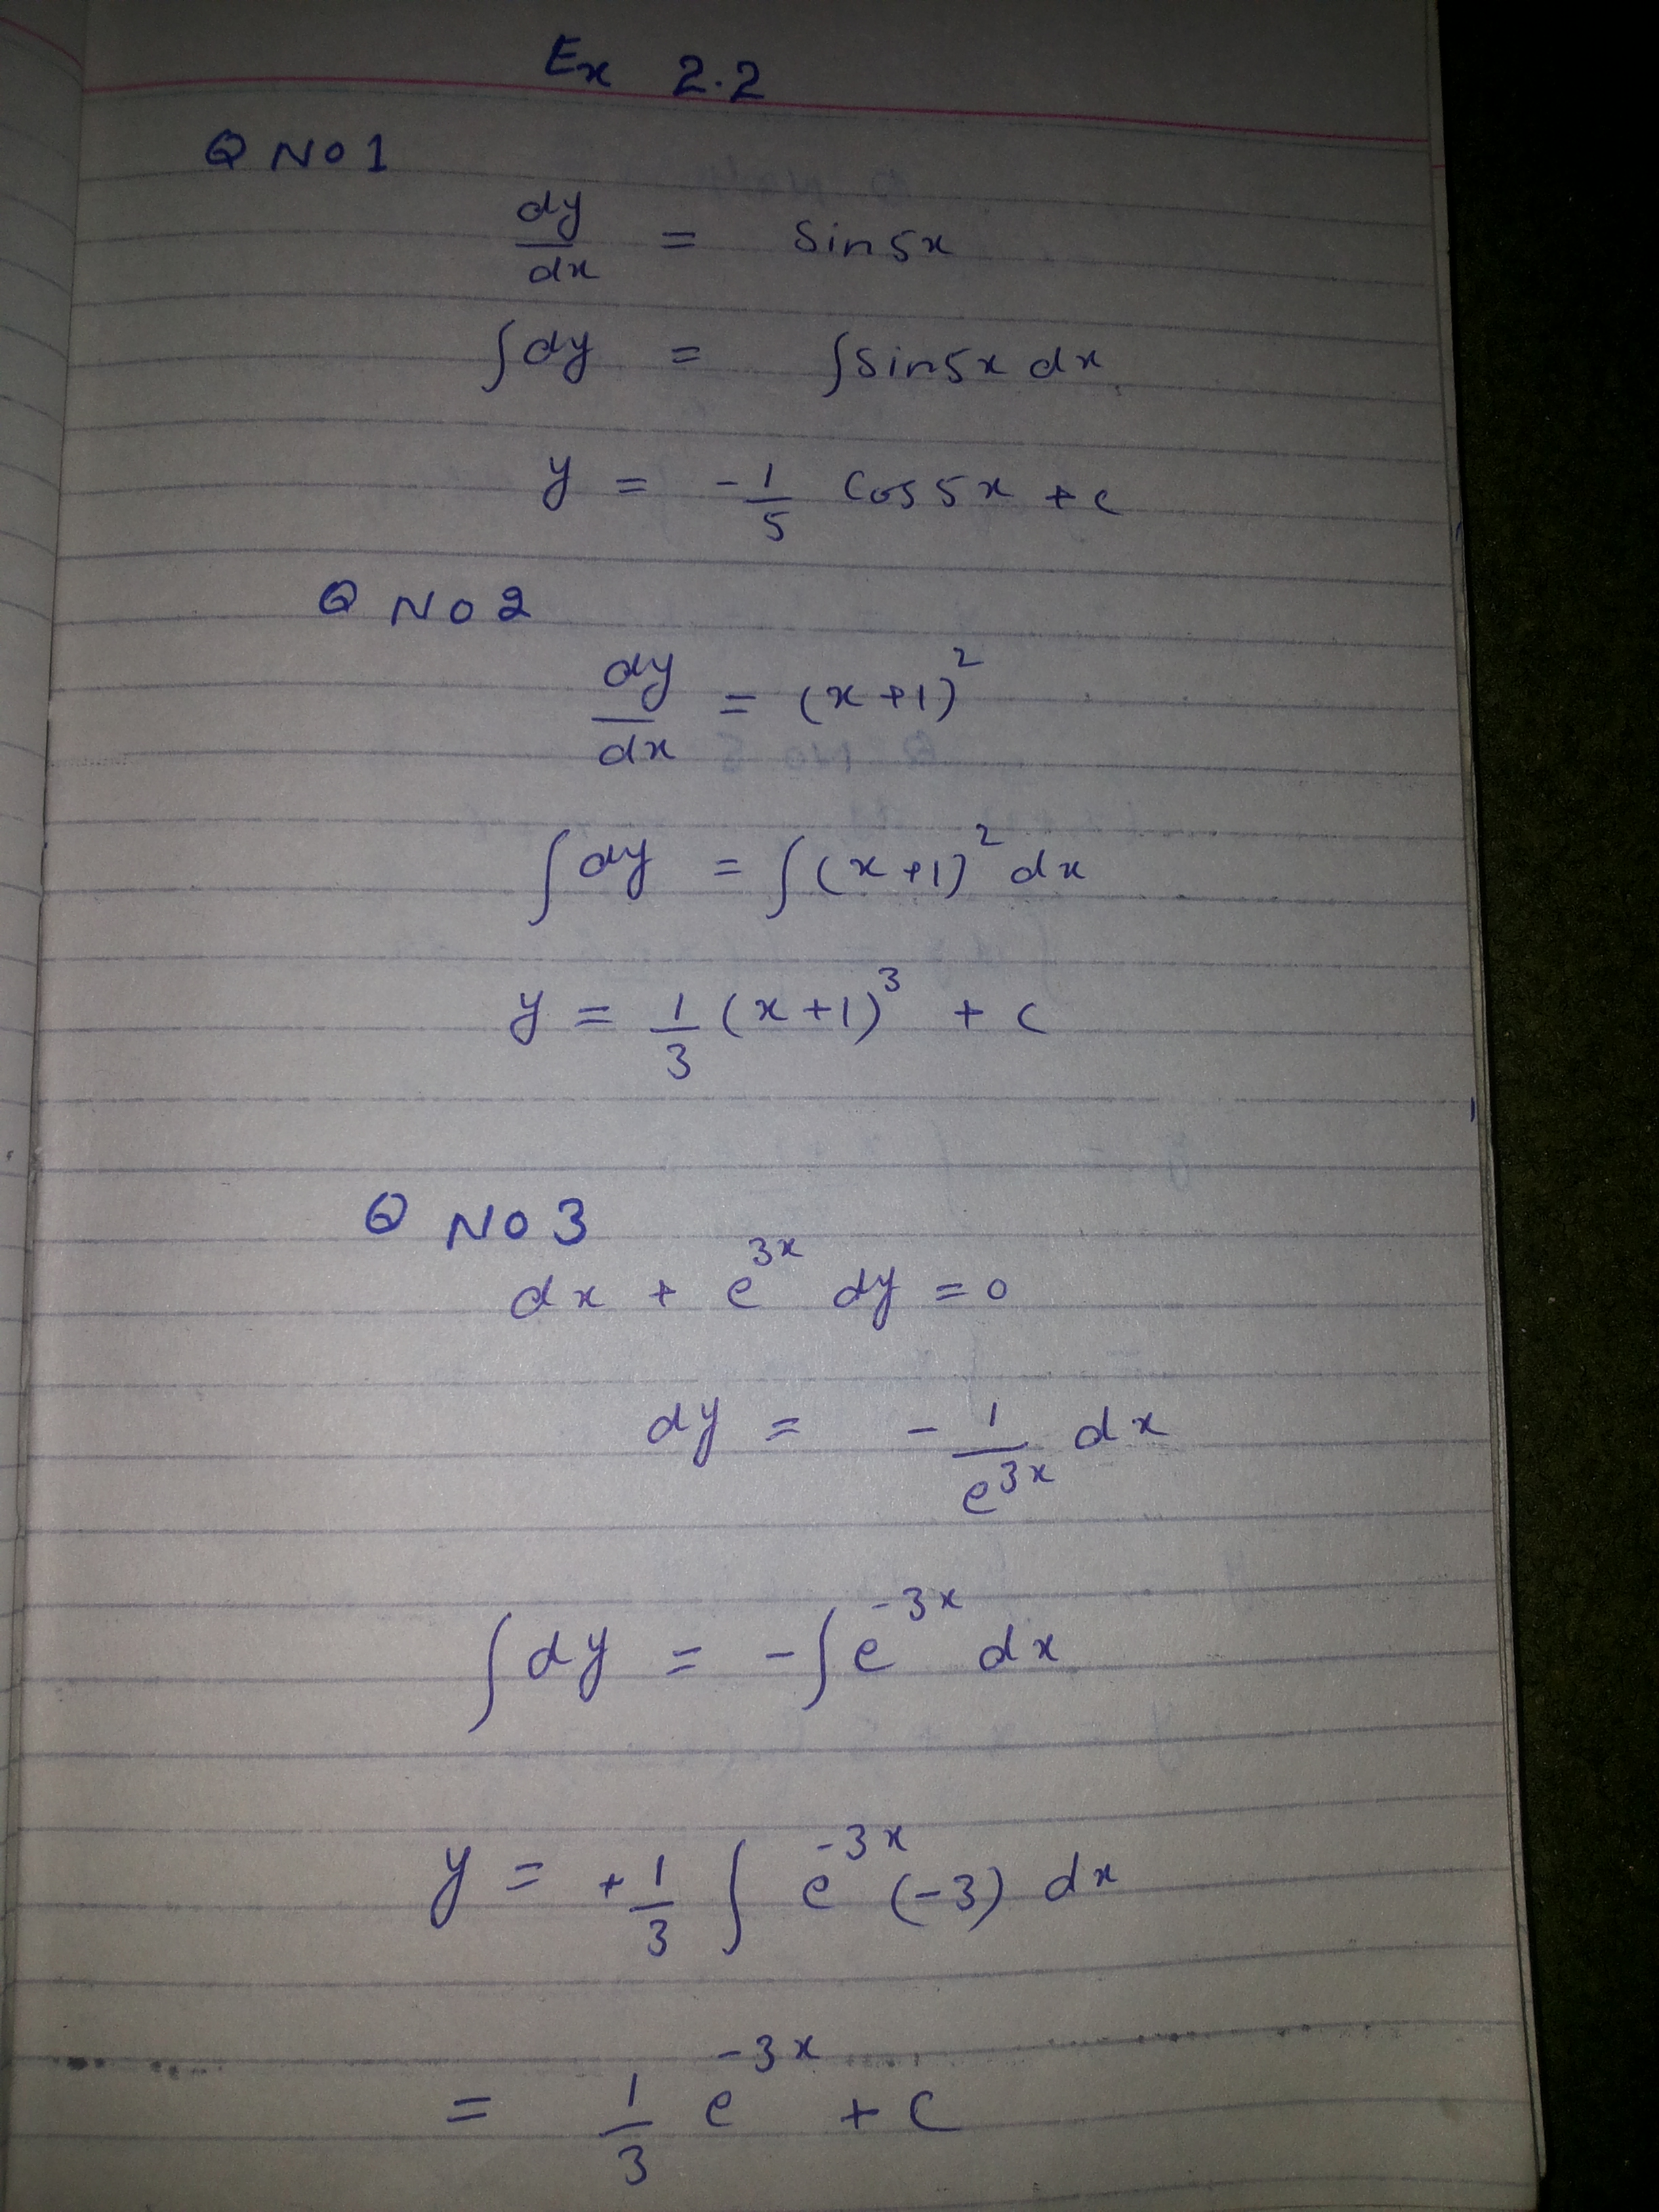 Ex 2.2
Q No 1
dy/dx = Sin5x
∫dy = ∫Sin5x dx
y = -1/5 Cos5x + c
Q No 2
dy/dx = (x+1)²
∫dy = ∫(x+1)² dx
y = 1/3 (x+1)³ + c
Q No 3
dx + e³ˣ dy = 0
dy = - 1/e³ˣ dx
∫dy = -∫e⁻³ˣ dx
y = +1/3 ∫ e⁻³ˣ (-3) dx
= 1/3 e⁻³ˣ + c